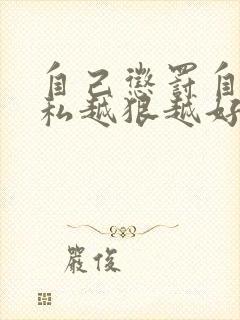 自己懲罰自
私越狠越好
嚴俊